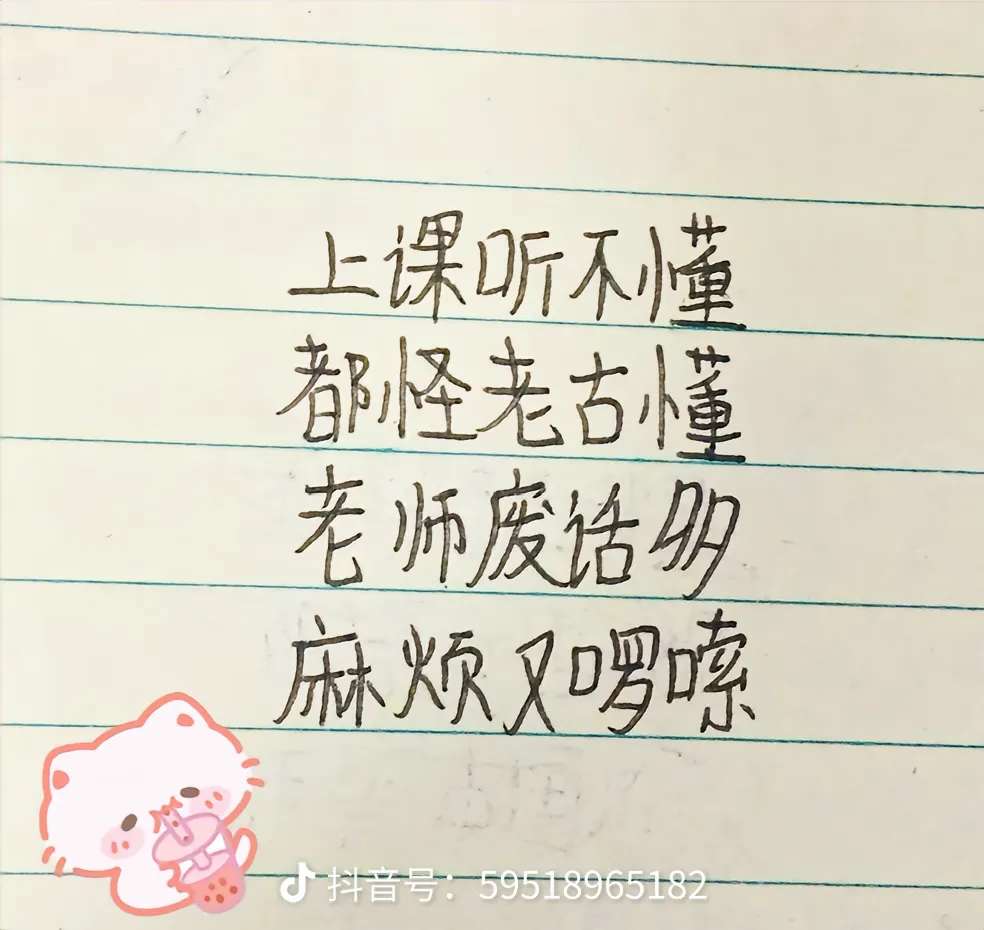 上课听不懂
都怪老古懂
老师废话多
麻烦又啰嗦
抖音号：59518965182